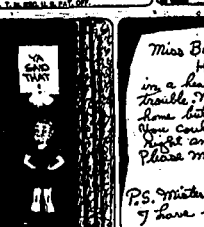 T. M. REG. U. S. PAT. OFF.
YA
SAID
THAT!
Miss B
in a hea
trouble.
home but
you coul
right an
Please m
P.S. Mister
I have